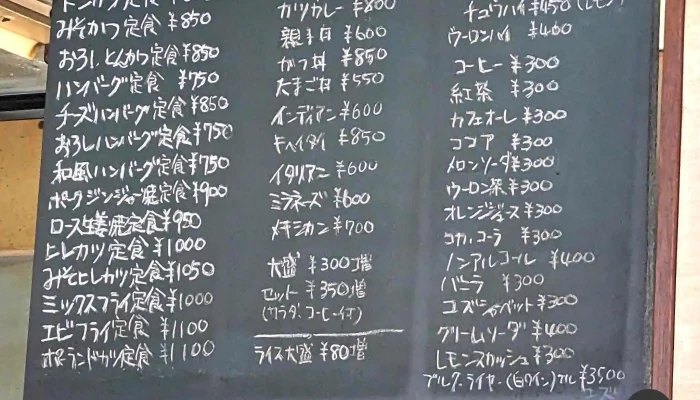 みそかつ定食 ¥850
おろしとんかつ定食 ¥850
ハンバーグ定食 ¥750
チーズハンバーグ定食 ¥850
おろしハンバーグ定食 ¥750
和風ハンバーグ定食 ¥750
ポークジンジャー焼定食 ¥900
ロース生姜焼定食 ¥950
ヒレカツ定食 ¥1000
みそヒレカツ定食 ¥1050
ミックスフライ定食 ¥1000
エビフライ定食 ¥1100
ポーランドカツ定食 ¥1100
カツカレー ¥800
親子丼 ¥600
かつ丼 ¥850
たまご丼 ¥550
インディアン ¥600
¥850
イタリアン ¥600
ミラネーズ ¥600
メキシカン ¥700
大盛 ¥300増
セット ¥350増
(サラダ・コーヒー付)
ライス大盛 ¥80増
チュウハイ ¥450 (レモン)
ウーロンハイ ¥400
コーヒー ¥300
紅茶 ¥300
カフェオーレ ¥300
ココア ¥300
メロンソーダ ¥300
ウーロン茶 ¥300
オレンジジュース ¥300
コカ・コーラ ¥300
ノンアルコール ¥400
バニラ ¥300
ユズシャーベット ¥300
クリームソーダ ¥400
レモンスカッシュ ¥300
(白ワイン) フル ¥3500